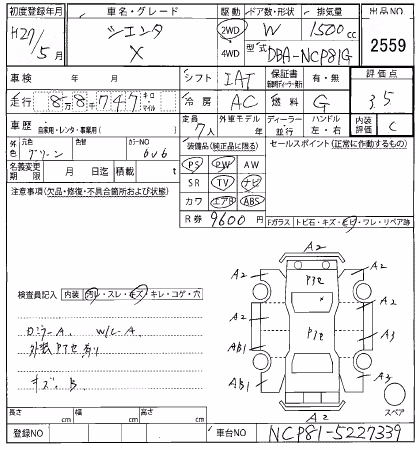 初度登録年月 車名・グレード 駆動 ドア数・形状 排気量 出品NO
H27/5月 シエンタ X 2WD 4WD W 1500cc 2559
型式 DBA-NCP81G
車検 年 月 シフト IAT 保証書 有・無 評価点
走行 8万8千747キロ マイル 冷房 AC 燃料 G 3.5
車歴 自家用・レンタ・事業用( ) 定員 7人 外車モデル 年 ディーラー 並行 ハンドル 左・右 内装評価 C
外色 元色 グリーン 色替 カラーNO 6V6 装備品(純正品に限る) セールスポイント(正常に作動するもの)
PS PW AW
名義変更期限 月 日迄 積載 t SR TV ナビ
注意事項(欠品・修復・不具合箇所および状態) カワ エアB ABS
R券 9600円 Fガラス トビ石・キズ・ヒビ・ワレ・リペア跡
A2
A2 P1e A2
検査員記入 内装 汚レ・スレ・キズ・キレ・コゲ・穴
A2 P1e A3
AB1
外装PTe有り
AB1 A3
キズ. B
A2 スペア
長さ cm 幅 cm 高さ cm
登録NO 車台NO NCP81-5227339